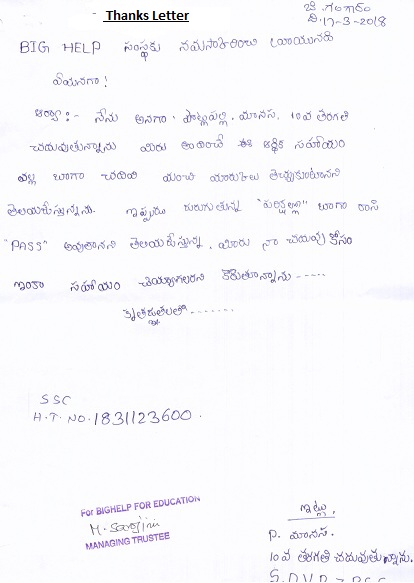 Thanks Letter
జి. గంగారం
ది. 17-3-2018
BIG HELP సంస్థకు నమసాకరించి
ఏమనగా!
ఆర్యా :- నేను అనగా పొట్లపల్లి. మానస. 10వ తరగతి
చదువుతున్నాను మీరు అందించే ఈ ఆర్థిక సహాయం
వల్ల బాగా చదివి మంచి మారుకులు తెచ్చుకుంటానని
తెలియజేస్తున్నాను. ఇప్పుడు జరుగుతున్న "పరీక్షల్లో" బాగా రాసి
"PASS" అవుతానని తెలియజేస్తున్న. మీరు నా చదువు కోసం
ఇంకా సహాయం చెయ్యగలరని కోరుతూన్నాను -----
కృతజ్ఞతలతో -------
SSC
H.T. NO. 1831123600.
For BIGHELP FOR EDUCATION
M. Sarojini
MANAGING TRUSTEE
ఇట్లు
P. మానస.
10వ తరగతి చదువుతున్నాను.